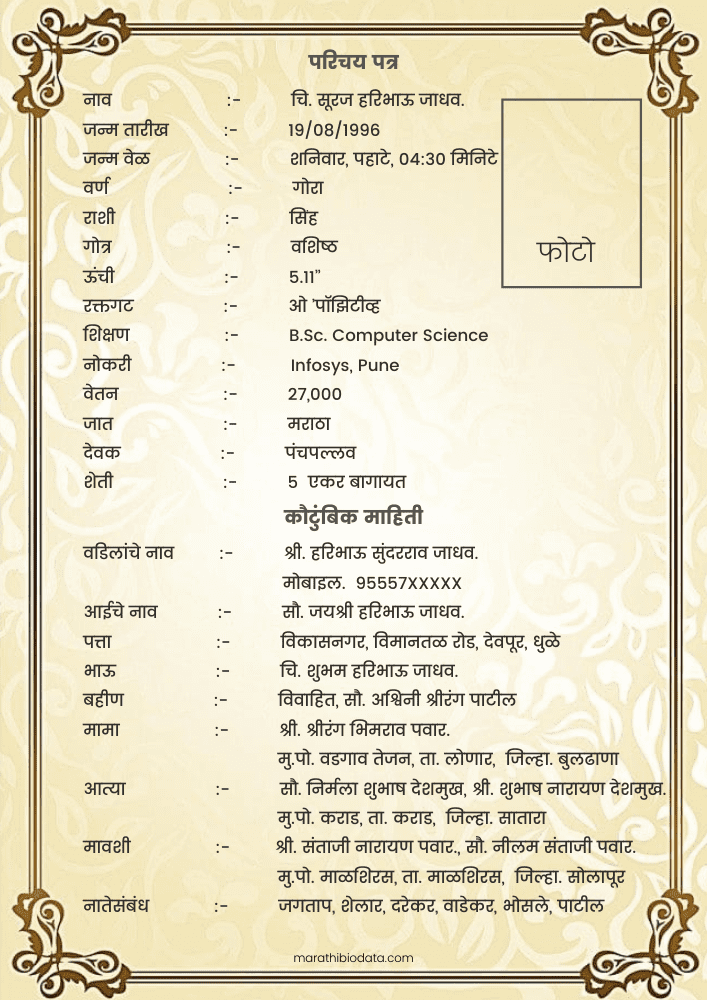 परिचय पत्र
नाव :- चि. सूरज हरिभाऊ जाधव.
जन्म तारीख :- 19/08/1996
जन्म वेळ :- शनिवार, पहाटे, 04:30 मिनिटे
वर्ण :- गोरा
राशी :- सिंह
गोत्र :- वशिष्ठ
फोटो
ऊंची :- 5.11"
रक्तगट :- ओ 'पॉझिटीव्ह
शिक्षण :- B.Sc. Computer Science
नोकरी :- Infosys, Pune
वेतन :- 27,000
जात :- मराठा
देवक :- पंचपल्लव
शेती :- 5 एकर बागायत
कौटुंबिक माहिती
वडिलांचे नाव :- श्री. हरिभाऊ सुंदरराव जाधव.
मोबाइल. 95557XXXXX
आईचे नाव :- सौ. जयश्री हरिभाऊ जाधव.
पत्ता :- विकासनगर, विमानतळ रोड, देवपूर, धुळे
भाऊ :- चि. शुभम हरिभाऊ जाधव.
बहीण :- विवाहित, सौ. अश्विनी श्रीरंग पाटील
मामा :- श्री. श्रीरंग भिमराव पवार.
मु.पो. वडगाव तेजन, ता. लोणार, जिल्हा. बुलढाणा
आत्या :- सौ. निर्मला शुभाष देशमुख, श्री. शुभाष नारायण देशमुख.
मु.पो. कराड, ता. कराड, जिल्हा. सातारा
मावशी :- श्री. संताजी नारायण पवार., सौ. नीलम संताजी पवार.
मु.पो. माळशिरस, ता. माळशिरस, जिल्हा. सोलापूर
नातेसंबंध :- जगताप, शेलार, दरेकर, वाडेकर, भोसले, पाटील
marathibiodata.com